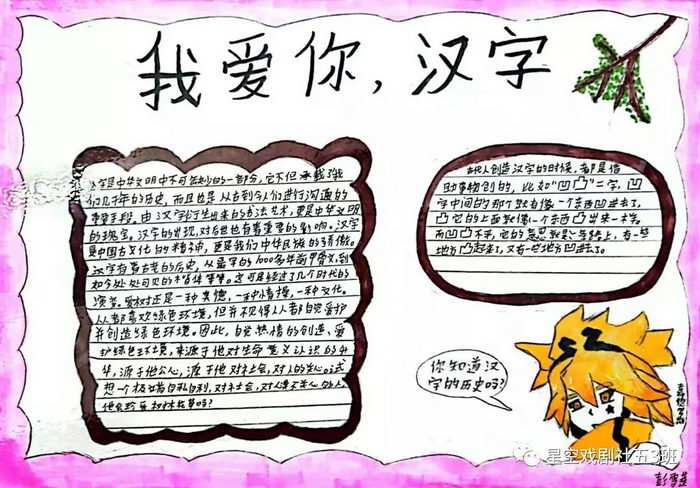 我爱你,汉字
汉字是中华文明中不可或缺的一部分,它不但承载了我
们几千年的历史,而且也是从古到今人们进行沟通的
重要手段。由汉字衍生出来的书法艺术,更是中华文明
的瑰宝。汉字的出现,对后世也有着重要的影响。汉字
是中国古文化的精神,更是我们中华民族的骄傲。
汉字有着古老的历史,从最早的1000多年前甲骨文,到
如今处处可见的楷体等等。这可是经过了几个时代的
演变。爱树还是一种美德,一种情操,一种文化。
人人都喜欢绿色环境,但并不见得人人都自觉爱护
并创造绿色环境。因此,自觉热情的创造、爱
护绿色环境,来源于他对生命意义认识的
华,源于他公心,源于他对社会,对人的关心。试
想一个极端自私自利,对社会,对人漠不关心的人,
他会珍爱树林花草吗?
古人创造汉字的时候,都是借
助事物创的,比如“凹凸”二字,凹
字中间的那个就有像一个东西凹进去了,
凸它的上面就像一个东西凸出来一样。
而凹凸不平,它的意思就是马路上,有一些
地方凸起来了,又有一些地方凹进去了。
你知道汉
字的历史吗?
星空戏剧社五3班